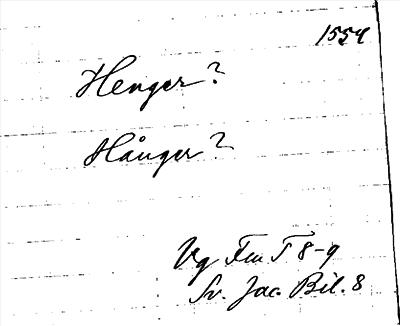 1554
Henger?
Hånger?
Vg Fra T 8-9
Sv. Jac. Bil. 8